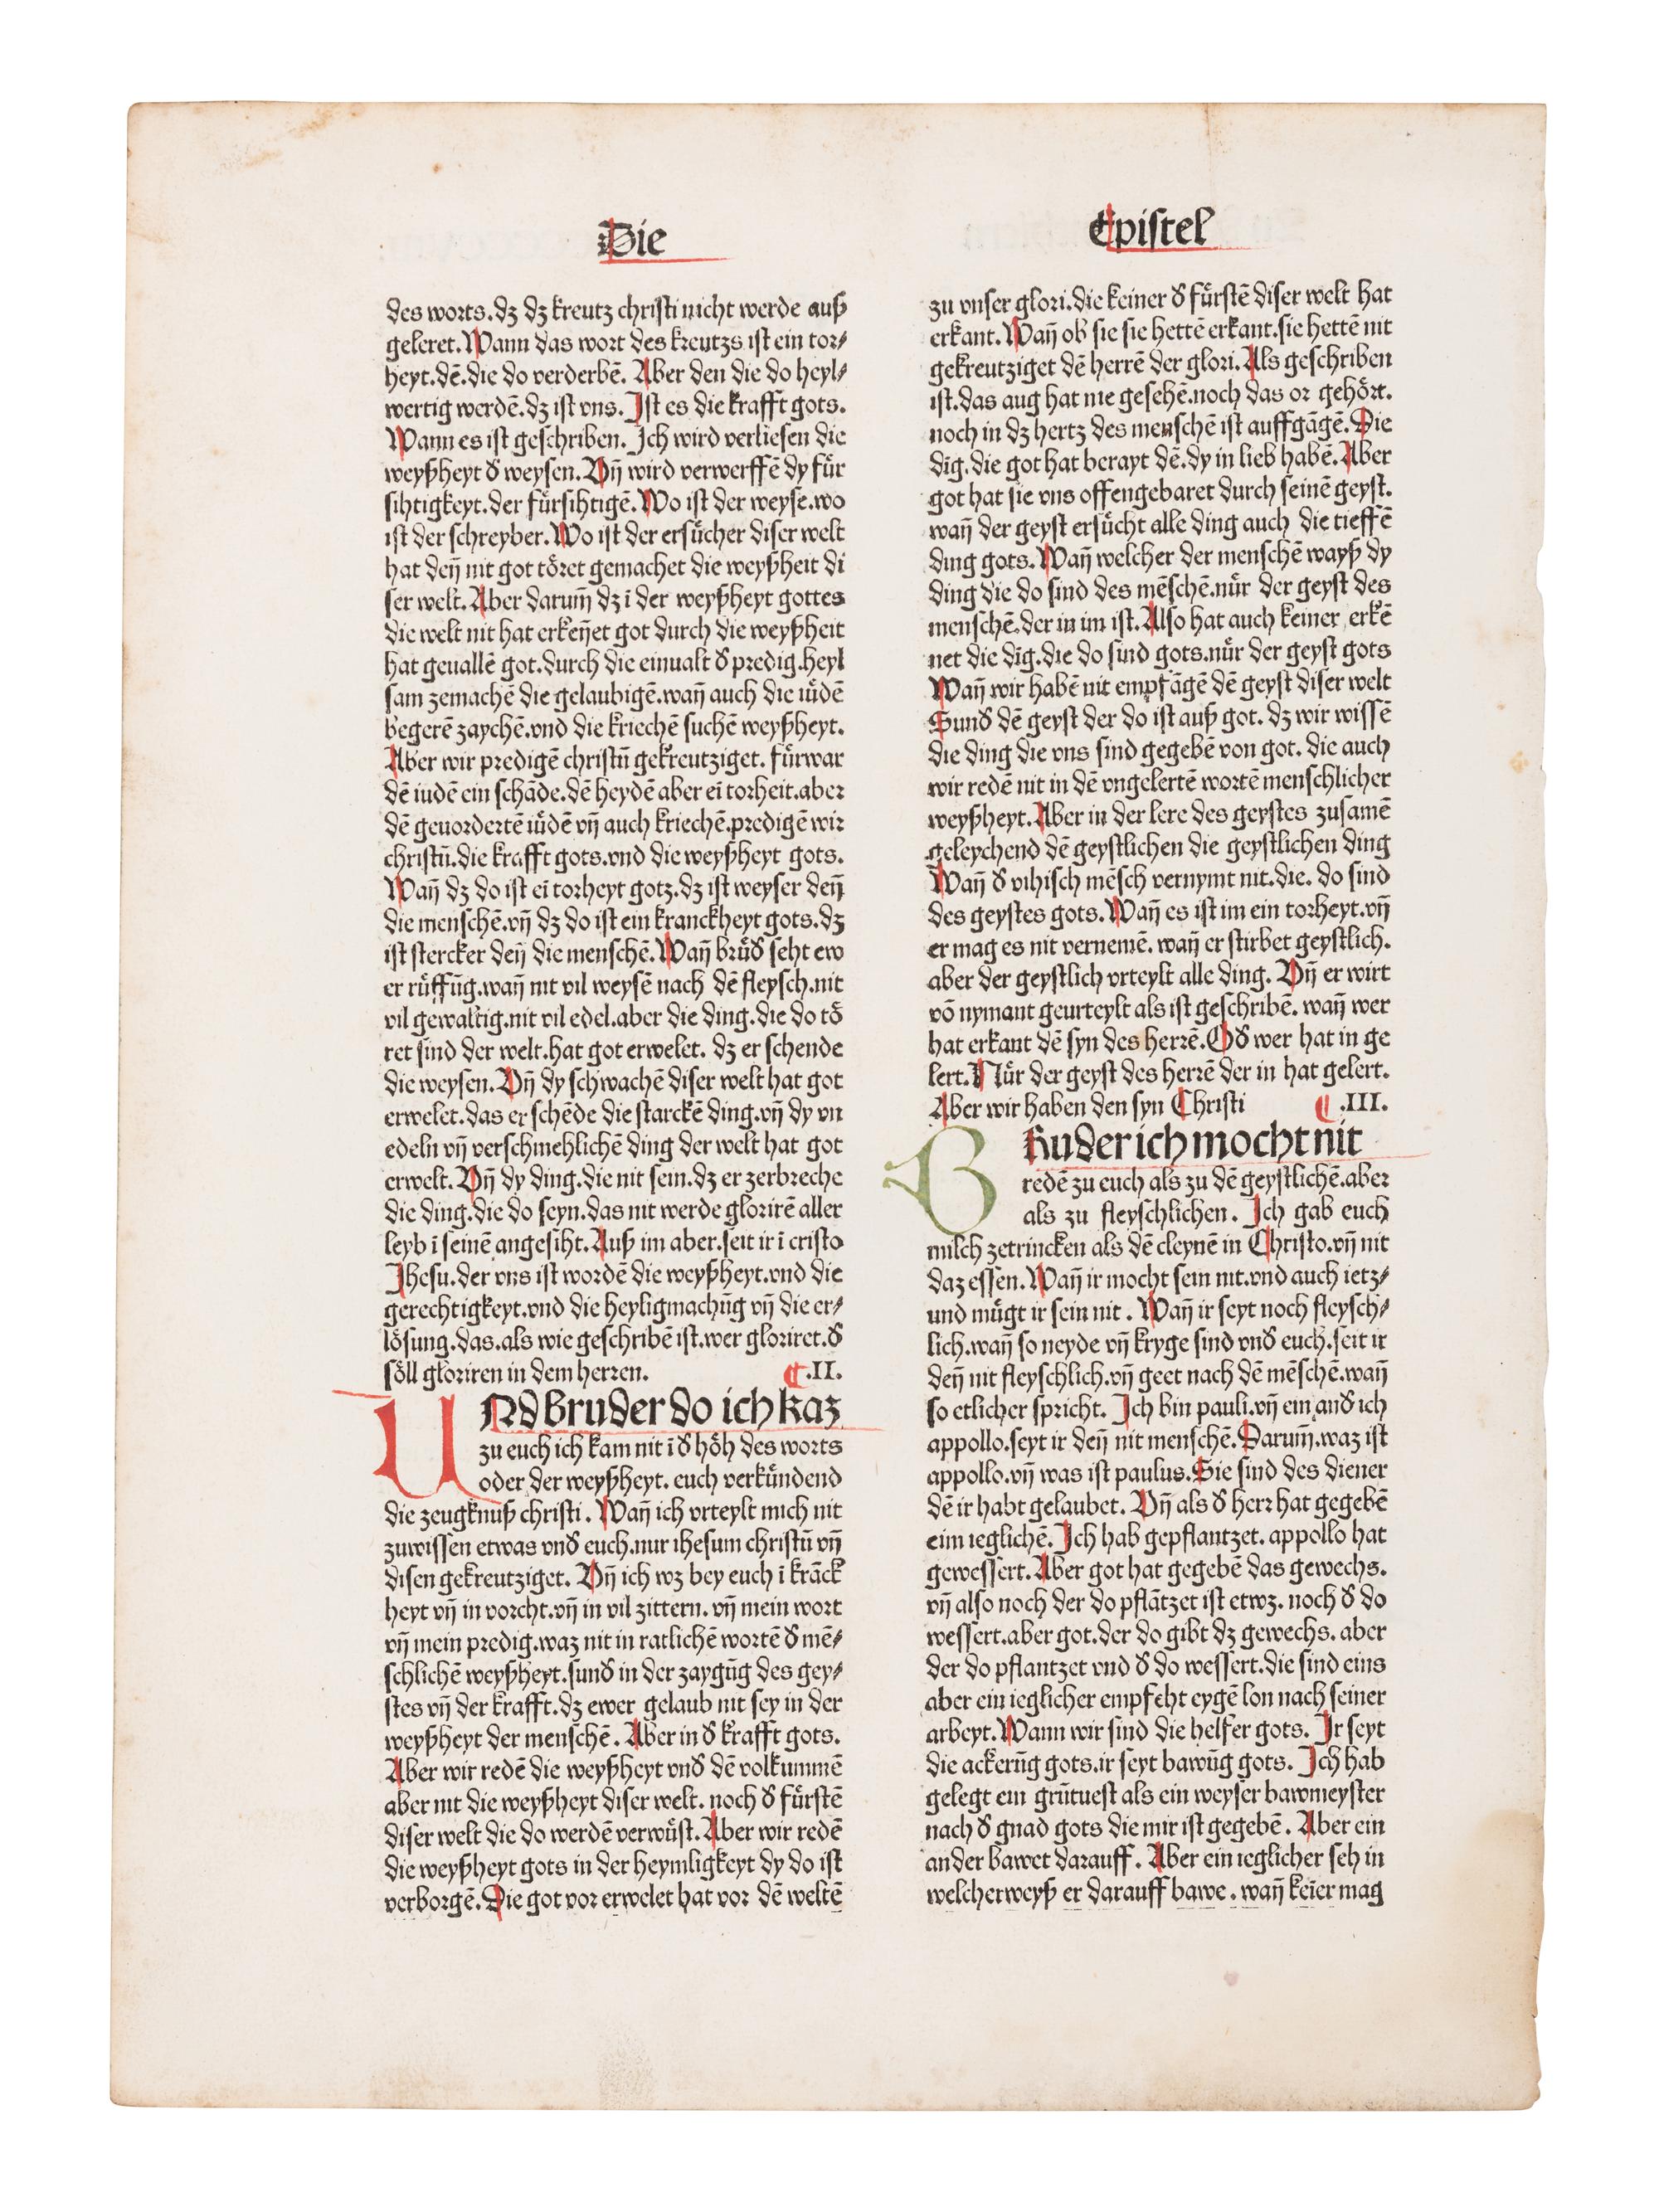 Die
Epistel
des worts.dz dz kreutz christi nicht werde auß
geleret.Wann das wort des kreutzs ist ein tor⸗
heyt.dē.die do verderbē. Aber den die do heyl⸗
wertig werdē.dz ist vns. Ist es die krafft gots.
Wann es ist geschriben. Ich wird verliesen die
weyßheyt ď weysen.Vñ wird verwerffē dy fuͤr
sihtigkeyt.der fuͤrsihtigē.Wo ist der weyse.wo
ist der schreyber.Wo ist der ersuͤcher diser welt
hat deñ nit got toͤret gemachet die weyßheit di
ser welt.Aber darum̄ dz ī der weyßheyt gottes
die welt nit hat erkeñet got durch die weyßheit
hat geuallē got.durch die einualt ď predig.heyl
sam zemachē die gelaubigē.wañ auch die iuͤdē
begerē zaychē.vnd die kriechē suchē weyßheyt.
Aber wir predigē christū gekreutziget. fuͤrwar
dē iudē ein schāde.dē heydē aber eī torheit.aber
dē geuordertē iuͤdē vñ auch kriechē.predigē wir
christū.die krafft gots.vnd die weyßheyt gots.
Wañ dz do ist eī torheyt gotz.dz ist weyser deñ
die menschē.vñ dz do ist ein kranckheyt gots.dz
ist stercker deñ die menschē.Wañ bruͤď seht ew
er ruͤffūg.wañ nit vil weysē nach dē fleysch.nit
vil gewaltig.nit vil edel.aber die ding.die do toͤ
ret sind der welt.hat got erwelet. dz er schende
die weysen.Vñ dy schwachē diser welt hat got
erwelet.das er schēde die starckē ding.vñ dy vn
edeln vñ verschmehlichē ding der welt hat got
erwelt.Vñ dy ding.die nit sein.dz er zerbreche
die ding.die do seyn.das nit werde glorirē aller
leyb ī seinē angesiht.Auß im aber.seit ir ī cristo
Jhesu.der vns ist wordē die weyßheyt.vnd die
gerechtigkeyt.vnd die heyligmachūg vñ die er⸗
loͤsung.das.als wie geschribē ist.wer gloriret.ď
soͤll gloriren in dem herren. ¶.II.
UNd bruder do ich kaz
zu euch ich kam nit ī ď hoͤh des worts
oder der weyßheyt. euch verkuͤndend
die zeugknuß christi. Wañ ich vrteylt mich nit
zuwissen etwas vnď euch.nur ihesum christū vñ
disen gekreutziget. Vñ ich wz bey euch ī krāck
heyt vñ in vorcht.vñ in vil zittern. vñ mein wort
vñ mein predig.waz nit in ratlichē wortē ď mē⸗
schlichē weyßheyt.sunď in der zaygūg des gey⸗
stes vñ der krafft.dz ewer gelaub nit sey in der
weyßheyt der menschē. Aber in ď krafft gots.
Aber wir redē die weyßheyt vnď dē volkummē
aber nit die weyßheyt diser welt. noch ď fuͤrstē
diser welt die do werdē verwuͤst.Aber wir redē
die weyßheyt gots in der heymligkeyt dy do ist
verborgē.Die got vor erwelet hat vor dē weltē
zu vnser glori.die keiner ď fuͤrstē diser welt hat
erkant.Wañ ob sie sie hettē erkant.sie hettē nit
gekreutziget dē herrē der glori.Als geschriben
ist.das aug hat nie gesehē.noch das or gehoͤrt.
noch in dz hertz des menschē ist auffgāgē.Die
dīg.die got hat berayt dē.dy in lieb habē.Aber
got hat sie vns offengebaret durch seinē geyst.
wañ der geyst ersuͤcht alle ding auch die tieffē
ding gots.Wañ welcher der menschē wayß dy
ding die do sind des mēschē.nuͤr der geyst des
menschē.der in im ist.Also hat auch keiner erkē
net die dīg.die do sind gots.nuͤr der geyst gots
Wañ wir habē nit empfāgē dē geyst diser welt
Sunď dē geyst der do ist auß got. dz wir wissē
die ding die vns sind gegebē von got. die auch
wir redē nit in dē vngelertē wortē menschlicher
weyßheyt.Aber in der lere des geystes zusamē
geleychend dē geystlichen die geystlichen ding
Wañ ď vihisch mēsch vernymt nit.die. do sind
des geystes gots.Wañ es ist im ein torheyt.vñ
er mag es nit vernemē. wañ er stirbet geystlich.
aber der geystlich vrteylt alle ding. Vñ er wirt
vō nymant geurteylt als ist geschribē. wañ wer
hat erkant dē syn des herrē.Oď wer hat in ge
lert.Nuͤr der geyst des herrē der in hat gelert.
Aber wir haben den syn Christi ¶.III.
BRuder ich mocht nit
redē zu euch als zu dē geystlichē.aber
als zu fleyschlichen. Ich gab euch
milch zetrincken als dē cleynē in Christo.vñ nit
daz essen.Wañ ir mocht sein nit.vnd auch ietz⸗
und muͤgt ir sein nit. Wañ ir seyt noch fleysch⸗
lich.wañ so neyde vñ kryge sind vnď euch.seit ir
deñ nit fleyschlich.vñ geet nach dē mēschē.wañ
so etlicher spricht. Ich bin pauli.vñ ein anď ich
appollo.seyt ir deñ nit menschē.Darum̄.waz ist
appollo.vñ was ist paulus.Sie sind des diener
dē ir habt gelaubet. Vñ als ď herr hat gegebē
eim ieglichē. Ich hab gepflantzet. appollo hat
gewessert.Aber got hat gegebē das gewechs.
vñ also noch der do pflātzet ist etwz. noch ď do
wessert.aber got.der do gibt dz gewechs. aber
der do pflantzet vnd ď do wessert.die sind eins
aber ein ieglicher empfeht eygē lon nach seiner
arbeyt.Wann wir sind die helfer gots. Ir seyt
die ackerūg gots.ir seyt bawūg gots. Ich hab
gelegt ein grūtuest als ein weyser bawmeyster
nach ď gnad gots die mir ist gegebē. Aber ein
ander bawet darauff. Aber ein ieglicher seh in
welcherweyß er darauff bawe. wañ keīer mag